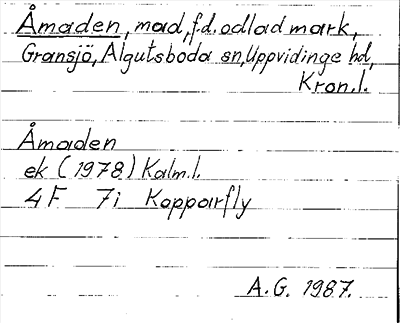 Åmaden, mad, f.d. odlad mark,
Gransjö, Algutsboda sn, Uppvidinge hd,
Kron.l.
Åmaden
ek (1978) Kalm.l.
4F 7i Kopparfly
A.G. 1987.